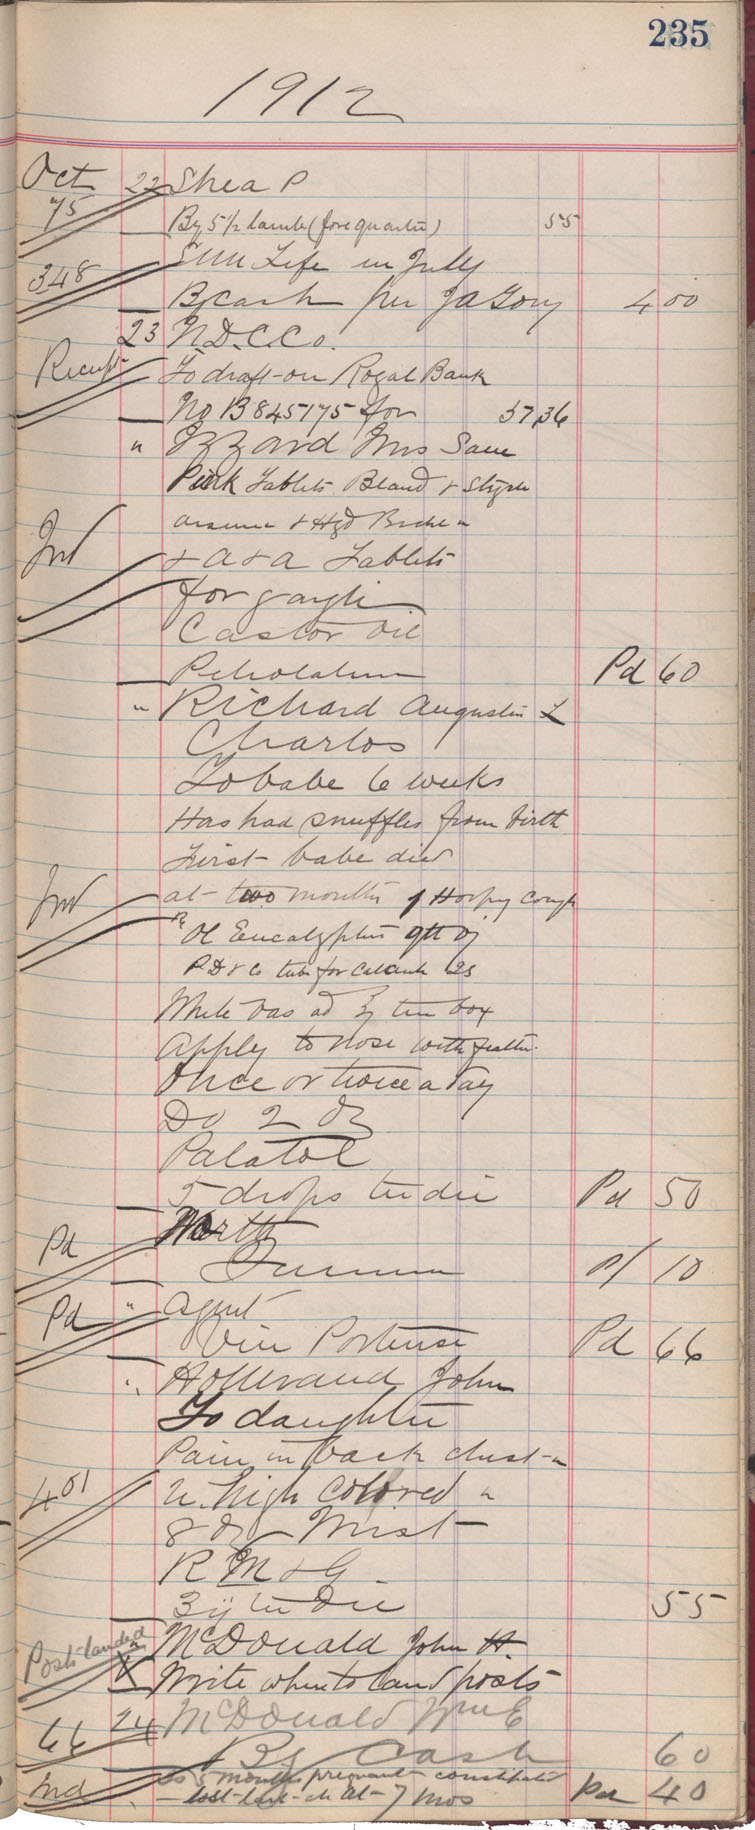 235
1912
Oct 22 Shea P
75 By 5 1/2 lamb (fore quarter) 55
348 Sun Life in July
By cash per J A Gory 4 00
23 N. D. C. Co.
Receipt To draft on Royal Bank
No B 845175 for 37 36
" Izzard Mrs Sam
Pink Tablets Bland & Stryc
arsenic & Hyd
Ind & a & a Tablets
for
Castor oil
Petrolatum Pd 60
" Richard Augustin L
Charlos
To babe 6 weeks
Has had snuffles from birth
First babe died
Ind at two months of Hooping Cough
Rx Ol Eucalyptus gtt
P D & Co tube for Catarrh 25
White Vas ad ℥ tin box
Apply to nose with feather
Once or twice a day
Do 2 oz
Palatol
5 drops ter die Pd 50
Pd North
10
Pd " Agent
Pd 66
" John
To daughter
Pain in back chest "
401 u. high colored "
8 oz Mist
R M & G
ʒij ter die 55
Posts landed " McDonald John H
X Write when to land posts
66 24 McDonald Wm E
By Cash 60
Ind 5 months pregnant constipated
lost last ch at 7 mos Pd 40